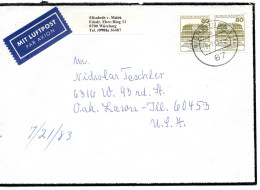 Elisabeth v. Malek
Friedr. Ebert-Ring 31
8700 Würzburg
Tel.
MIT LUFTPOST
PAR AVION
80
80
87
Mr.
Nicholas Teschler
6316 W. 93 rd. St.
Oak Lawn - Ill. 60453
U.S.A.
7/21/83